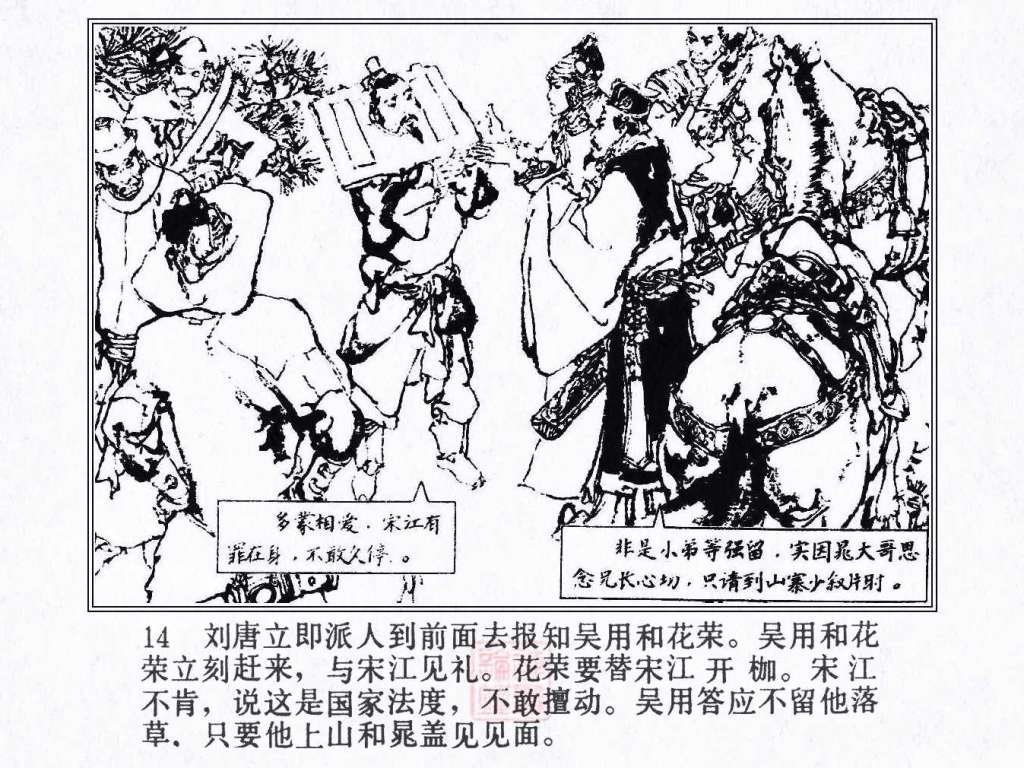 多蒙相爱，宋江有
罪在身，不敢久停。
非是小弟等强留，实因晁大哥思
念兄长心切，只请到山寨少叙片时。
14 刘唐立即派人到前面去报知吴用和花荣。吴用和花
荣立刻赶来，与宋江见礼。花荣要替宋江开枷。宋江
不肯，说这是国家法度，不敢擅动。吴用答应不留他落
草，只要他上山和晁盖见见面。